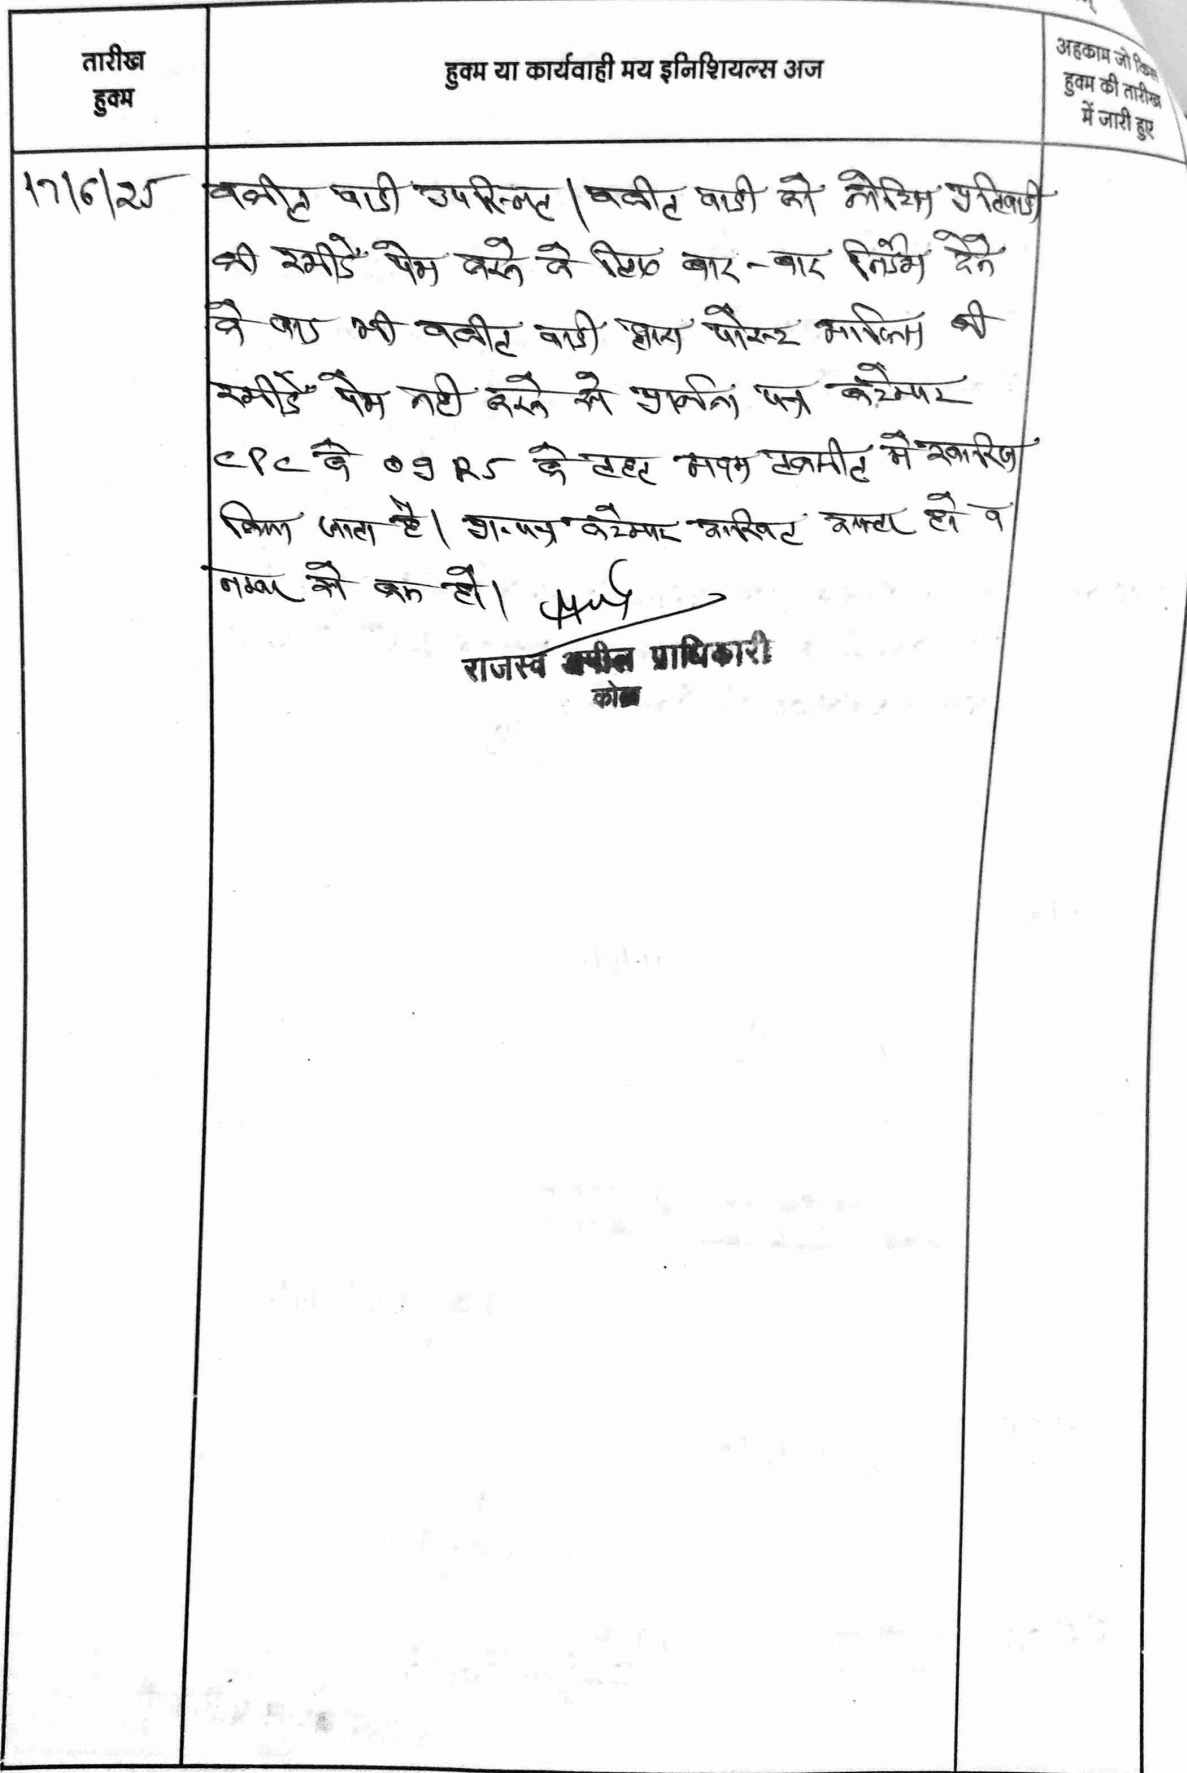 तारीख
हुक्म
हुक्म या कार्यवाही मय इनिशियल्स अज
अहकाम जो किस
हुक्म की तारीख
में जारी हुए
17/6/25 वकील वादी उपस्थित। वकील वादी को नोटिस प्रतिवादी
की रसीदें पेश करने के लिए बार-बार निर्देश देने
के बाद भी वकील वादी द्वारा पोस्ट आफिस की
रसीदें पेश नहीं करने से प्रार्थना पत्र कंटेम्पट
CPC के O9 R5 के तहत अदम तकमील में खारिज
किया जाता है। प्रा.पत्र कंटेम्पट दाखिल दफ्तर हो व
नम्बर से कम हो।
राजस्व अपील प्राधिकारी
कोटा